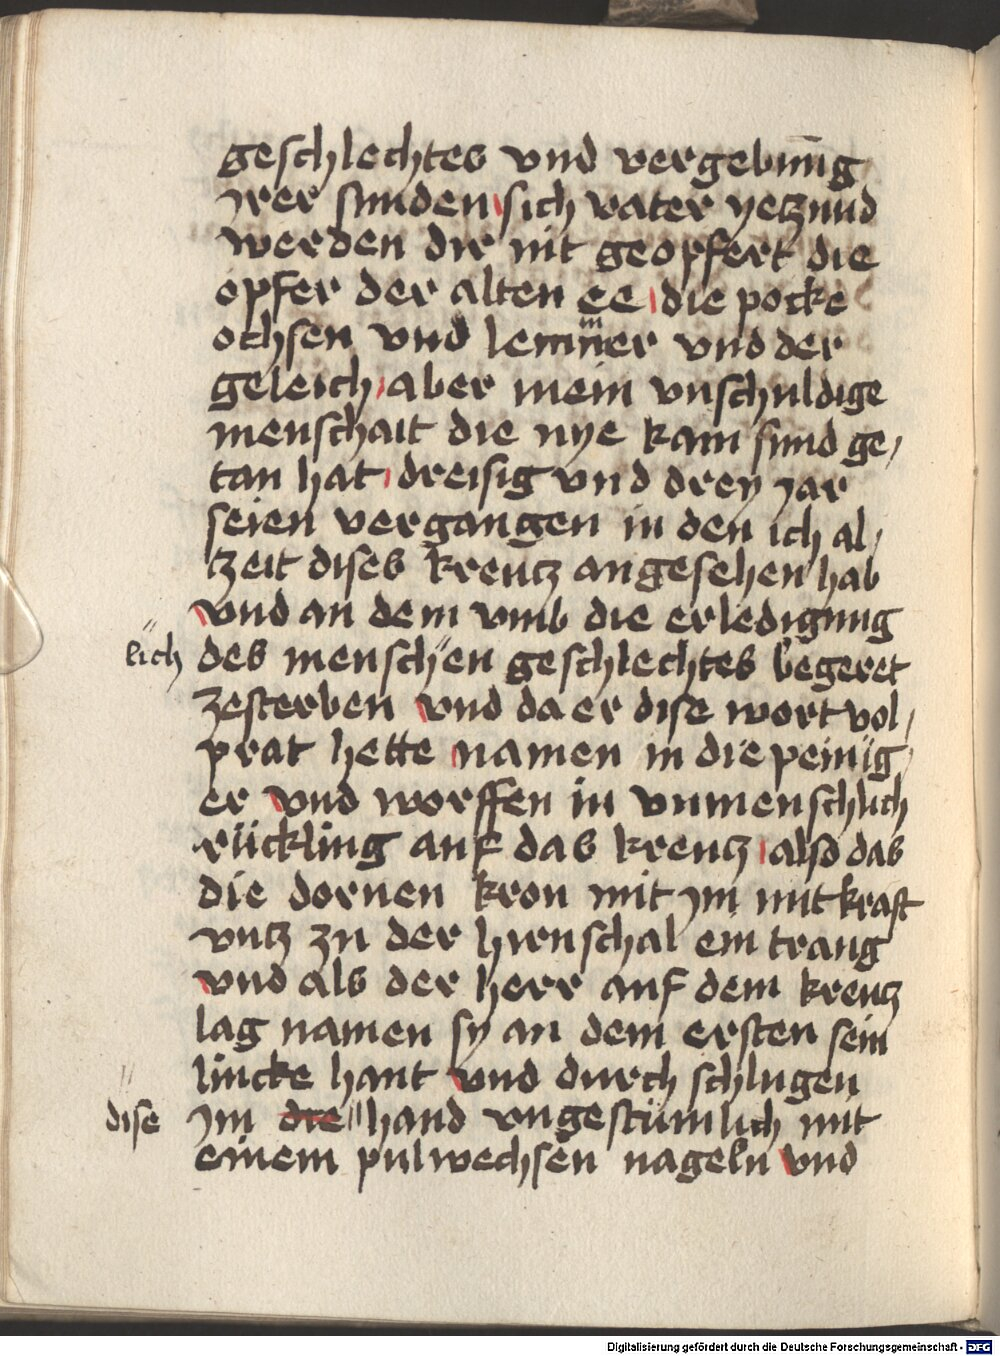 geschlechtes vnd vergebūng
jrer sunden sich vater yetzund
werden dir nit geopfert die
opfer der alten ee die pocke
ochsen vnd lemmer vnd der
geleich aber mein vnschuldige
menschait die nye kain sund ge
tan hat dreisig vnd drey jar
seien vergangen in den ich al
tzeit dises kreutz angesehen hab
vnd an dem vmb die erledigung
lich des menschen geschlechtes begeret
zesterben vnd da er dise wort vol
prat hette namen in die peinig
er vnd worffen in vnmenschlich
rückling auf das kreutz also das
die dornen kron mit jm mit kraft
vntz zu der hirnschal ein trang
vnd als der herr auf dem kreutz
lag namen sy an dem ersten sein
lincke hant vnd durch schlugen
dise jm die hand vngestümlich mit
einem pulwechsen nageln vnd
Digitalisierung gefördert durch die Deutsche Forschungsgemeinschaft - DFG